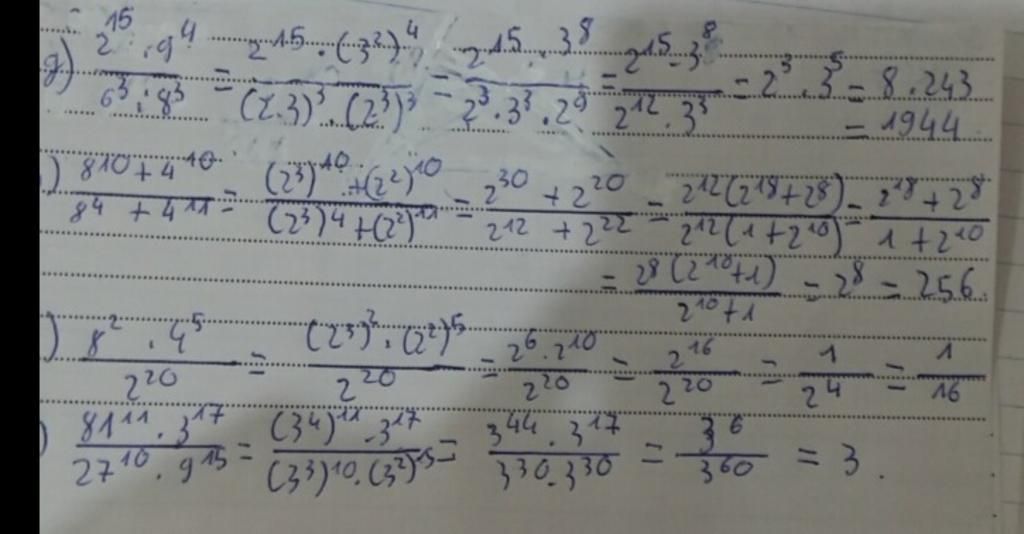 g) \frac{2^{15} \cdot 9^4}{6^3 \cdot 8^3} = \frac{2^{15} \cdot (3^2)^4}{(2 \cdot 3)^3 \cdot (2^3)^3} = \frac{2^{15} \cdot 3^8}{2^3 \cdot 3^3 \cdot 2^9} = \frac{2^{15} \cdot 3^8}{2^{12} \cdot 3^3} = 2^3 \cdot 3^5 = 8 \cdot 243
= 1944
) \frac{8^{10} + 4^{10}}{8^4 + 4^{11}} = \frac{(2^3)^{10} + (2^2)^{10}}{(2^3)^4 + (2^2)^{11}} = \frac{2^{30} + 2^{20}}{2^{12} + 2^{22}} = \frac{2^{12}(2^{18} + 2^8)}{2^{12}(1 + 2^{10})} = \frac{2^{18} + 2^8}{1 + 2^{10}}
= \frac{2^8(2^{10} + 1)}{2^{10} + 1} = 2^8 = 256.
) \frac{8^2 \cdot 4^5}{2^{20}} = \frac{(2^3)^2 \cdot (2^2)^5}{2^{20}} = \frac{2^6 \cdot 2^{10}}{2^{20}} = \frac{2^{16}}{2^{20}} = \frac{1}{2^4} = \frac{1}{16}
) \frac{81^{11} \cdot 3^{17}}{27^{10} \cdot 9^{15}} = \frac{(3^4)^{11} \cdot 3^{17}}{(3^3)^{10} \cdot (3^2)^{15}} = \frac{3^{44} \cdot 3^{17}}{3^{30} \cdot 3^{30}} = \frac{3^6}{3^{60}} = 3.